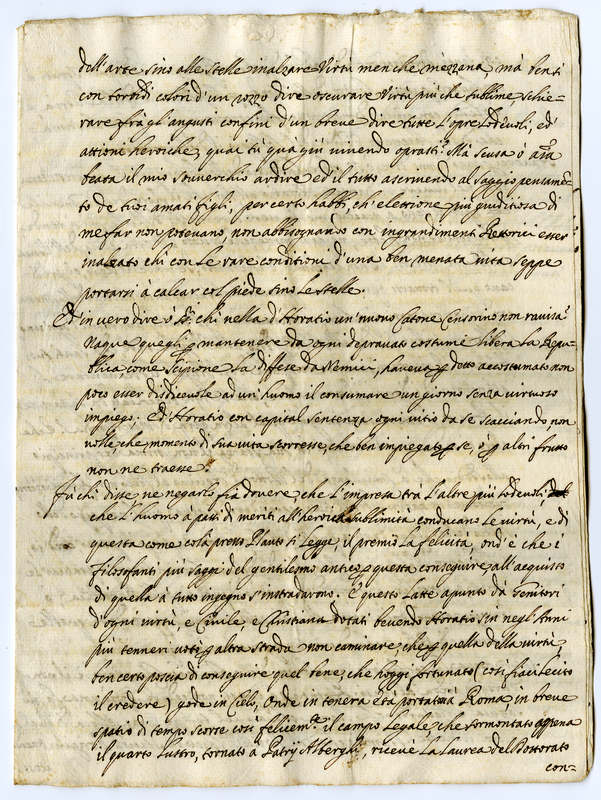 dell'arte sino alle stelle inalzare Virtù men che mezzana, mà bensi
con torbidi colori d'un rozzo dire oscurare Virtù più che sublime, schie-
rare frà gl'angusti confini d'un breve dire tutte l'opre lodevoli, ed
attioni heroiche, quai tù qua giù vivendo oprasti? Mà scusa ò
beata il mio soverchio ardire ed il tutto ascrivendo al saggio pensamē-
to de tuoi amati figli, per certo habbi, ch'elettione più giuditiosa di
me far non potevano, non abbisognando con ingrandimenti Rettorici esser
inalzato chi con le rare conditioni d'una ben menata vita seppe
portarsi à calcar col piede sino le stelle.
Ed in vero dite ò SS.ri chi nella d'Horatio un'nuovo Catone Censorino non ravisa?
Naque quegli p mantenere da ogni depravato costume libera la Repu-
blica, come Scipione la diffese da Nemici, haveva p detto accostumato non
poco esser disdicevole ad un'huomo il consumare un giorno senza virtuoso
impiego. Ed Horatio con capital sentenza ogni vitio da se scacciando non
volle, che momento di sua vita scorresse, che ben impiegato p se, ò p altri frutto
non ne traesse.
Fù chi disse, ne negarlo fia dovere, che l'impresa trà l'altre più lodevoli
che l'huomo à passi di meriti all'heroica sublimità conducano le virtù, e di
questa come cosa presso Plauto si legge, il premio la felicità, ond'è che i
filosofanti più saggi del gentilesmo antico p questa conseguire, all'acquisto
di quella a tutto ingegno s'instradarono. E questo latte apunto da Genitori
d'ogni virtù, e Civile, e Christiana dotati bevendo Horatio sin negl'Anni
più tenneri votò p altra strada non caminare, che p quella della virtù,
ben certo poscia di conseguire quel bene, che hoggi fortunato (così fiaci lecito
il credere) gode in Cielo, Onde in tenera età portatosi à Roma in breve
spatio di tempo scorse così felicem.te il campo Legale, che sormontato appena
il quarto lustro, tornato à Patrij Alberghi, ricevè la Laurea del Dottorato
con-